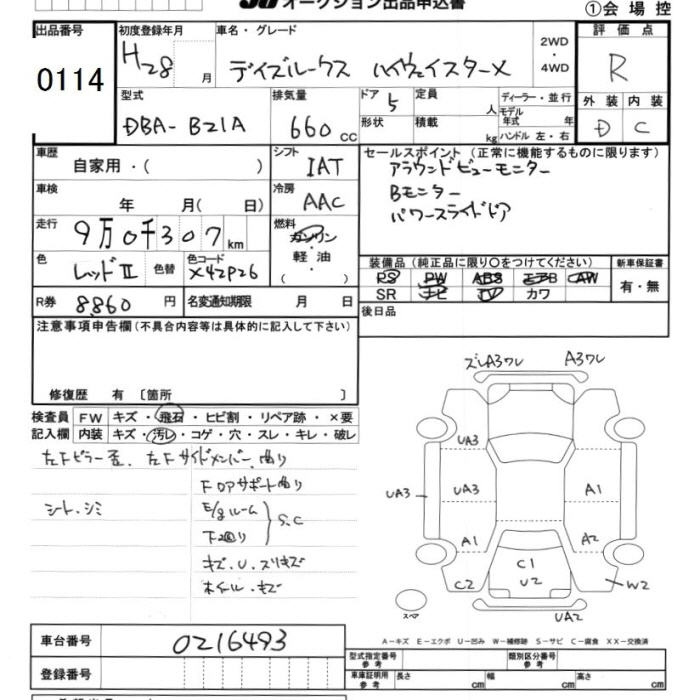 オークション出品申込書
①会 場 控
出品番号
0114
初度登録年月
H28 月
車名・グレード
デイズルークス ハイウェイスターX
2WD
・
4WD
評 価 点
R
型式
DBA-B21A
排気量
660 cc
ドア 5
形状
定員 人
積載 kg
ディーラー・並行
モデル年式 年
ハンドル 左・右
外 装 内 装
D C
車歴
自家用・( )
シフト
IAT
セールスポイント (正常に機能するものに限ります)
アラウンドビューモニター
Bモニター
パワースライドドア
車検
年 月( 日)
冷房
AAC
走行
9万0千307km
燃料
ガソリン
・
軽・油
( )
色
レッドII
色替
色コード
X42P26
装備品 (純正品に限り〇をつけてください)
PS PW ABS エアB AW
SR ナビ TV カワ
新車保証書
有・無
R券
8,860 円
名変通知期限 月 日
後日品
注意事項申告欄(不具合内容等は具体的に記入して下さい)
修復歴 有〔箇所 〕
検査員
記入欄
FW キズ・飛石・ヒビ割・リペア跡・×要
内装 キズ・汚レ・コゲ・穴・スレ・キレ・破レ
左Fピラー歪、左Fサイドメンバー曲り
FロアサポートE曲り
シート、シミ
E/gルーム
下回り
S、C
キズ、U、スリキズ
ホイール、キズ
ズレA3ワレ
A3ワレ
UA3
UA3
UA3
A1
A1
A2
C1
U2
C2
W2
UA2
スペア
A-キズ E-エクボ U-凹み W-補修跡 S-サビ C-腐食 XX-交換済
車台番号
0216493
登録番号
型式指定番号
参考
類別区分番号
参考
車庫証明用
参考
長さ cm
幅 cm
高さ cm